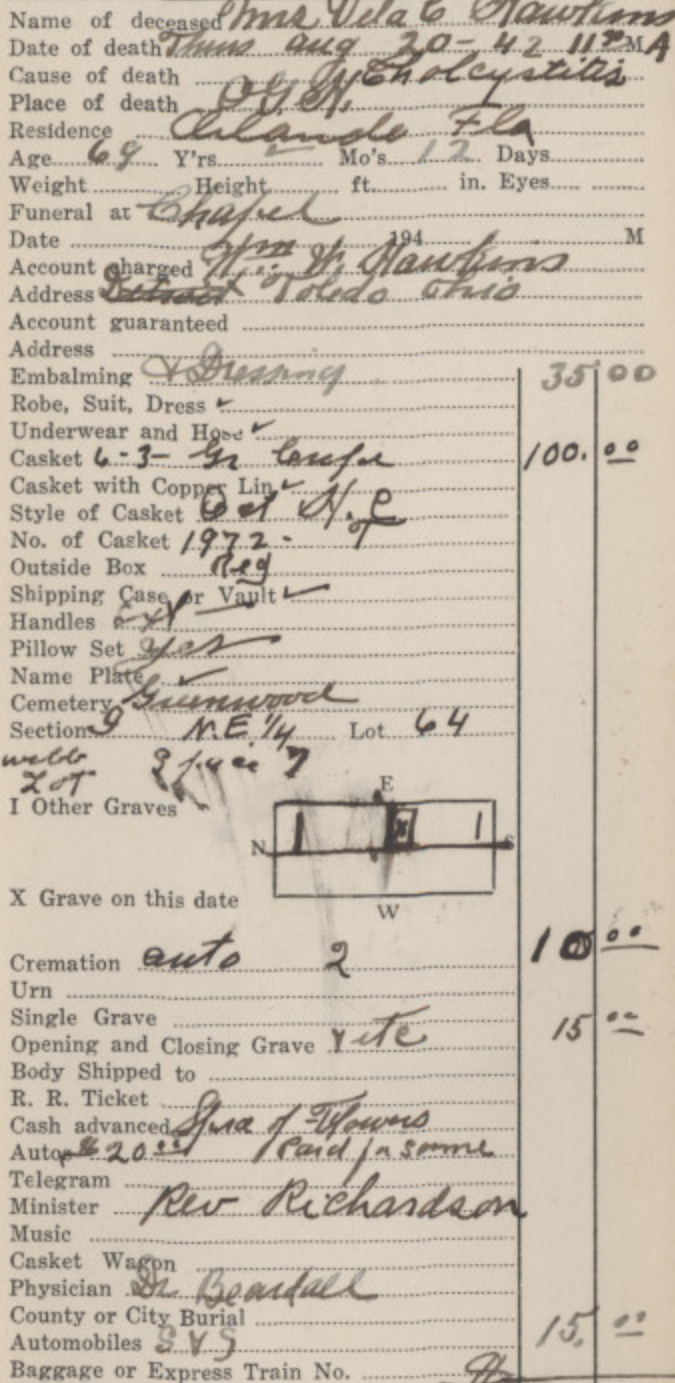 Name of deceased Mrs Vela C Hawkins
Date of death Thurs Aug 20 - 42 11 30 M A
Cause of death Cholcystitis
Place of death O G H.
Residence Orlando Fla
Age 69 Y'rs. — Mo's 12 Days
Weight Height ft. in. Eyes
Funeral at Chapel
Date 194 M
Account charged Wm W. Hawkins
Address Detroit Toledo Ohio
Account guaranteed
Address
Embalming & Dressing 35 00
Robe, Suit, Dress ✓
Underwear and Hose ✓
Casket 6-3- Gr 100. 00
Casket with Copper Lin ✓
Style of Casket Oct
No. of Casket 1972 -
Outside Box Reg
Shipping Case or Vault ✓
Handles
Pillow Set yes
Name Plate ✓
Cemetery Greenwood
Section 9 N.E. 1/4 Lot 64
Webb Space 7
Lot
I Other Graves
E
N S
X Grave on this date
W
Cremation auto 2 10 00
Urn
Single Grave
Opening and Closing Grave 15 00
Body Shipped to
R. R. Ticket
Cash advanced of Flowers
Autos $20 00 Paid for same
Telegram
Minister Rev Richardson
Music
Casket Wagon
Physician Dr Beardall
County or City Burial
Automobiles S V S 15. 00
Baggage or Express Train No.